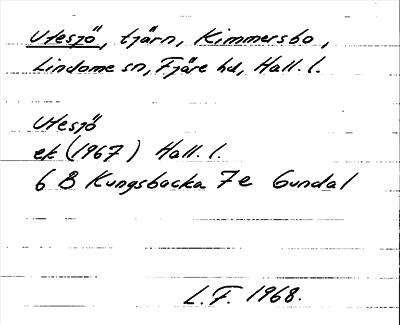 Utesjö, tjärn, Kimmersbo,
Lindome sn, Fjäre hd, Hall. l.
Utesjö
ek (1967) Hall. l.
6 B Kungsbacka 7e Gundal
L.F. 1968.